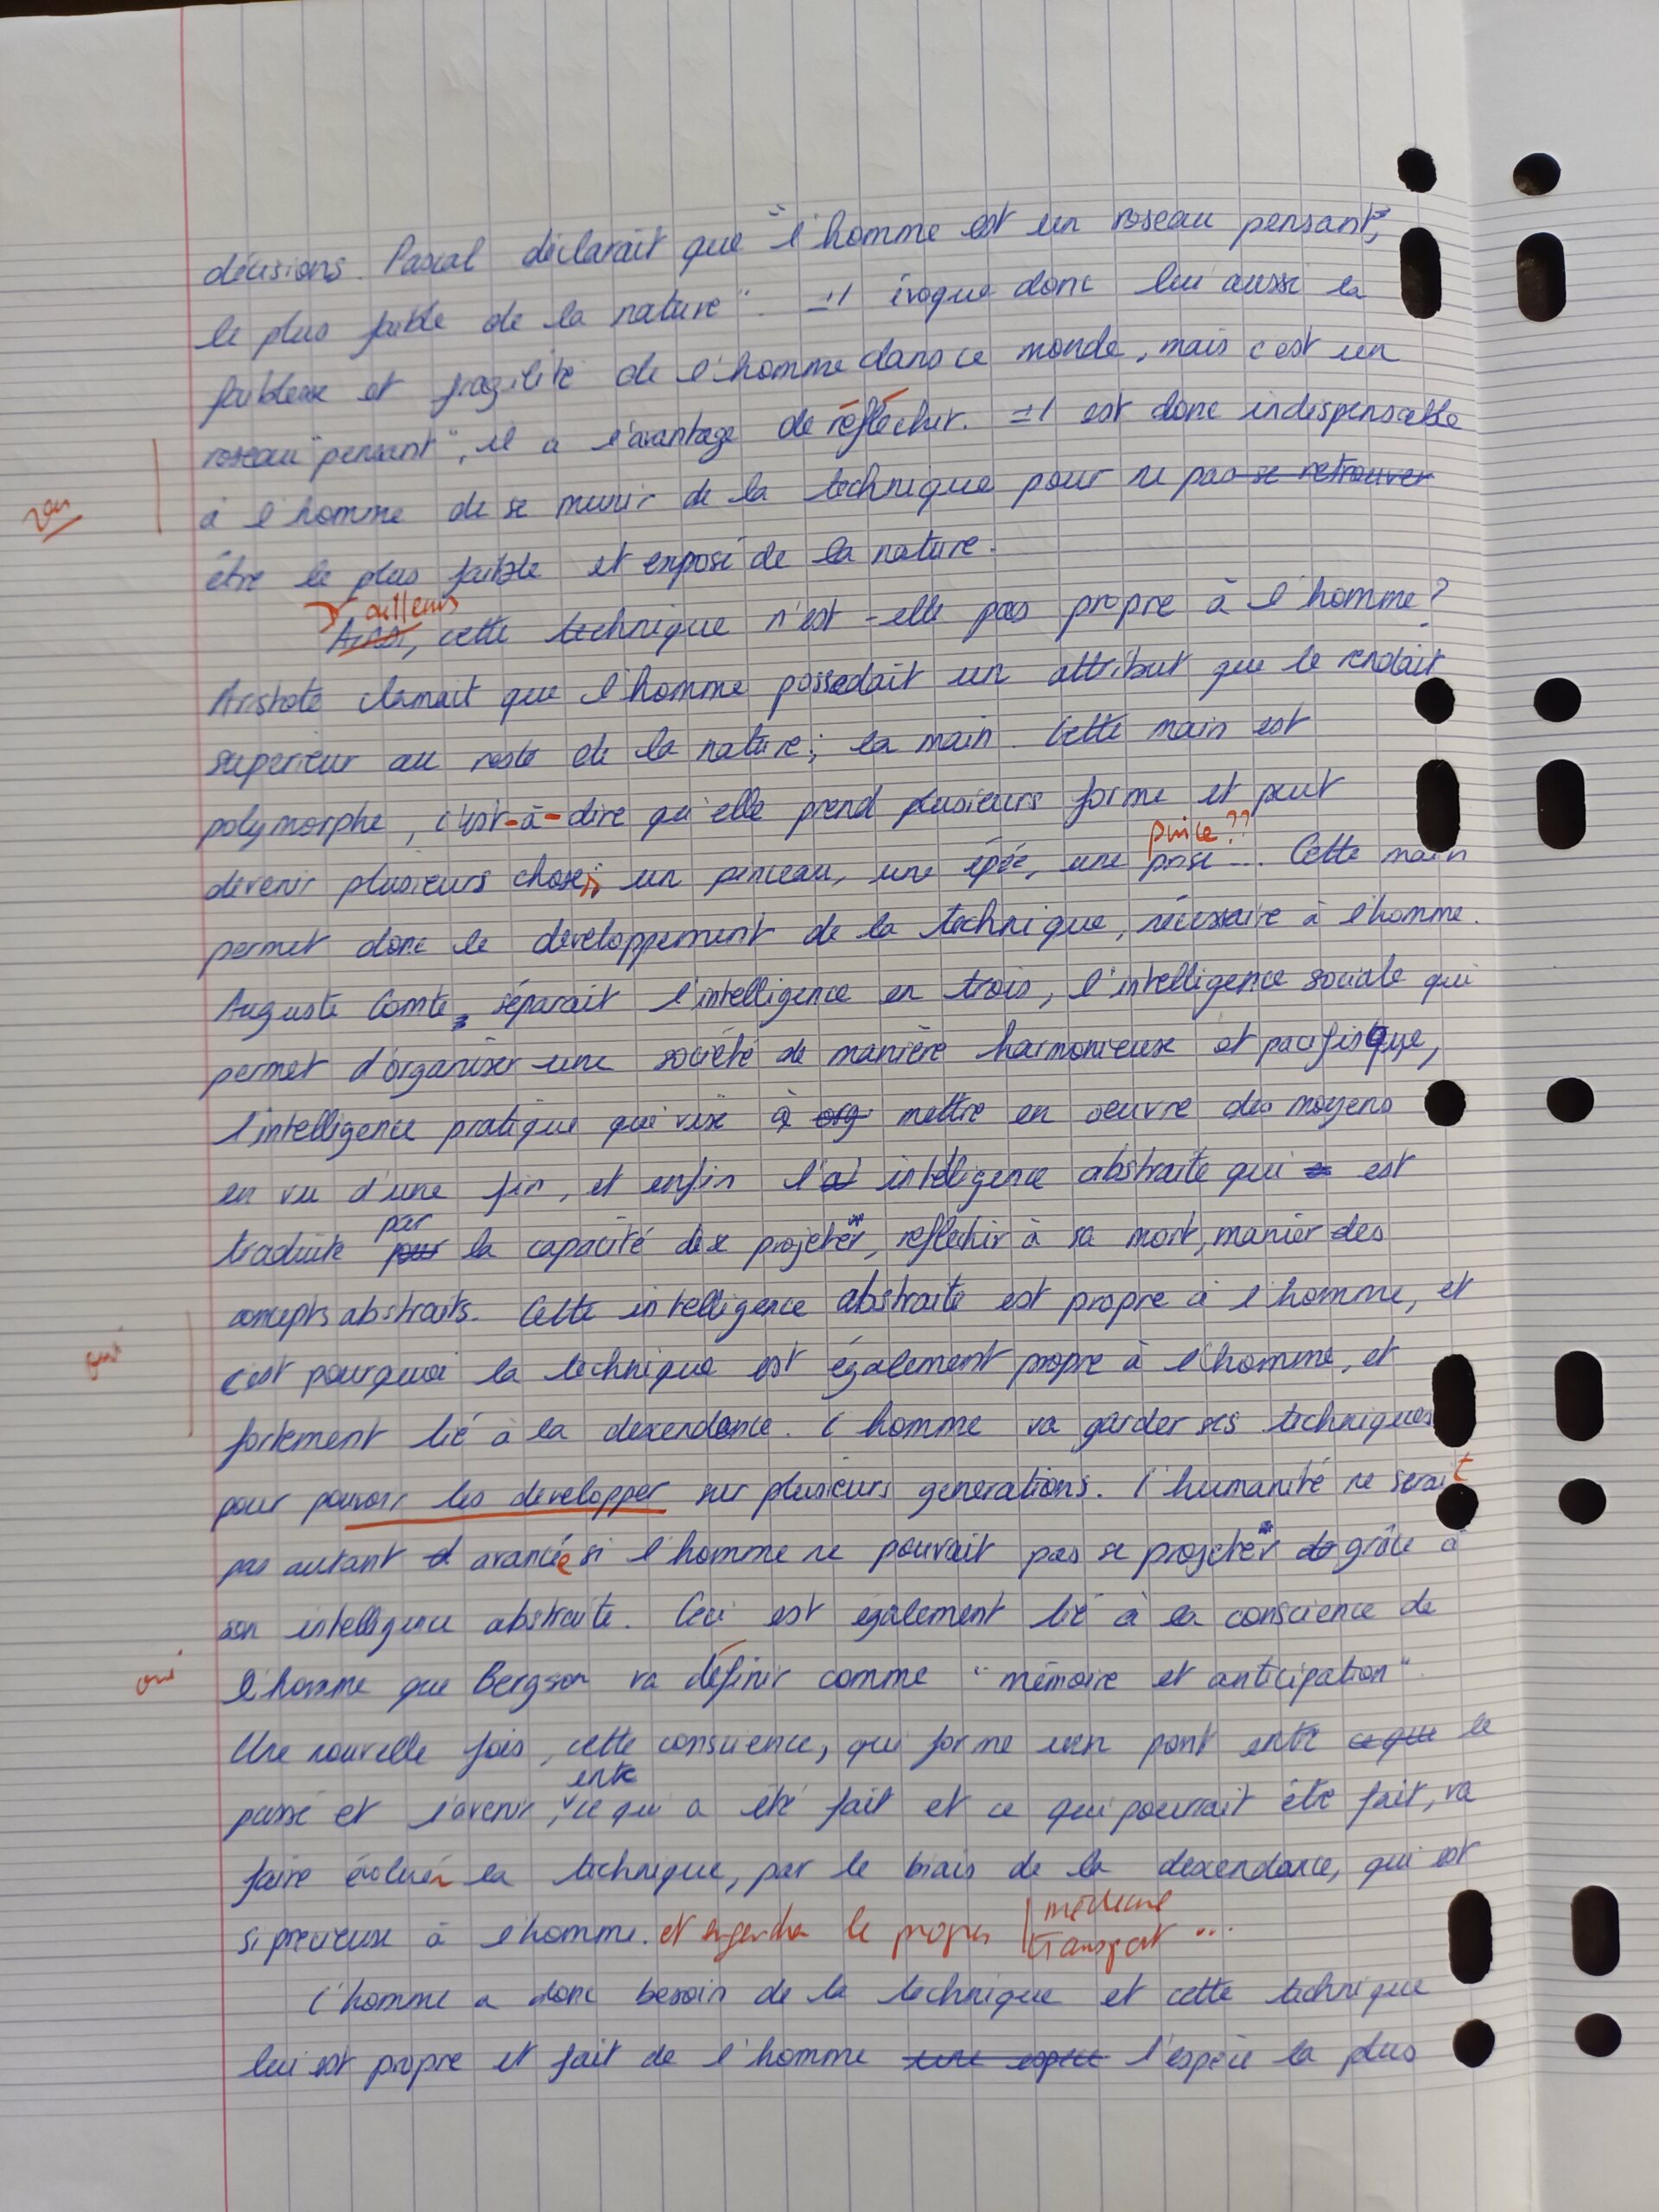 décisions. Pascal déclarait que "l'homme est un roseau pensant,
le plus faible de la nature". Il évoque donc lui aussi la
faiblesse et fragilité de l'homme dans ce monde, mais c'est un
roseau "pensant", il a l'avantage de réfléchir. Il est donc indispensable
à l'homme de se munir de la technique pour ne pas se retrouver
être le plus faible et exposé de la nature.
D'ailleurs
Ainsi, cette technique n'est-elle pas propre à l'homme?
Aristote clamait que l'homme possedait un attribut que le rendait
superieur au reste de la nature; la main. Cette main est
polymorphe, c'est-à-dire qu'elle prend plusieurs forme et peut
pince??
devenir plusieurs choses; un pinceau, une épée, une prise... Cette main
permet donc le developpement de la technique, nécessaire à l'homme.
Auguste Comte, séparait l'intelligence en trois, l'intelligence sociale qui
permet d'organiser une société de manière harmonieuse et pacifique,
l'intelligence pratique qui vise à org mettre en oeuvre des moyens
en vu d'une fin, et enfin l'a intelligence abstraite qui est
par
traduite pour la capacité de se projeter, reflechir à sa mort, manier des
concepts abstraits. Cette intelligence abstraite est propre à l'homme, et
c'est pourquoi la technique est également propre à l'homme, et
oui
fortement lié à la descendance. L'homme va garder ses techniques
pour pouvoir les developper sur plusieurs generations. L'humanité ne serait
pas autant d avancée si l'homme ne pouvait pas se projeter de grâce à
son intelligence abstraite. Ceci est également lié à la conscience de
oui
l'homme que Bergson va définir comme "mémoire et anticipation"
Une nouvelle fois, cette conscience, qui forme un pont entre ce que le
entre
passé et l'avenir, ce qui a été fait et ce qui pourrait être fait, va
faire évoluer la technique, par le biais de la descendance, qui est
si precieuse à l'homme. et engendrer le progrès médecine
transport ...
L'homme a donc besoin de la technique et cette technique
lui est propre et fait de l'homme une espèce l'espèce la plus